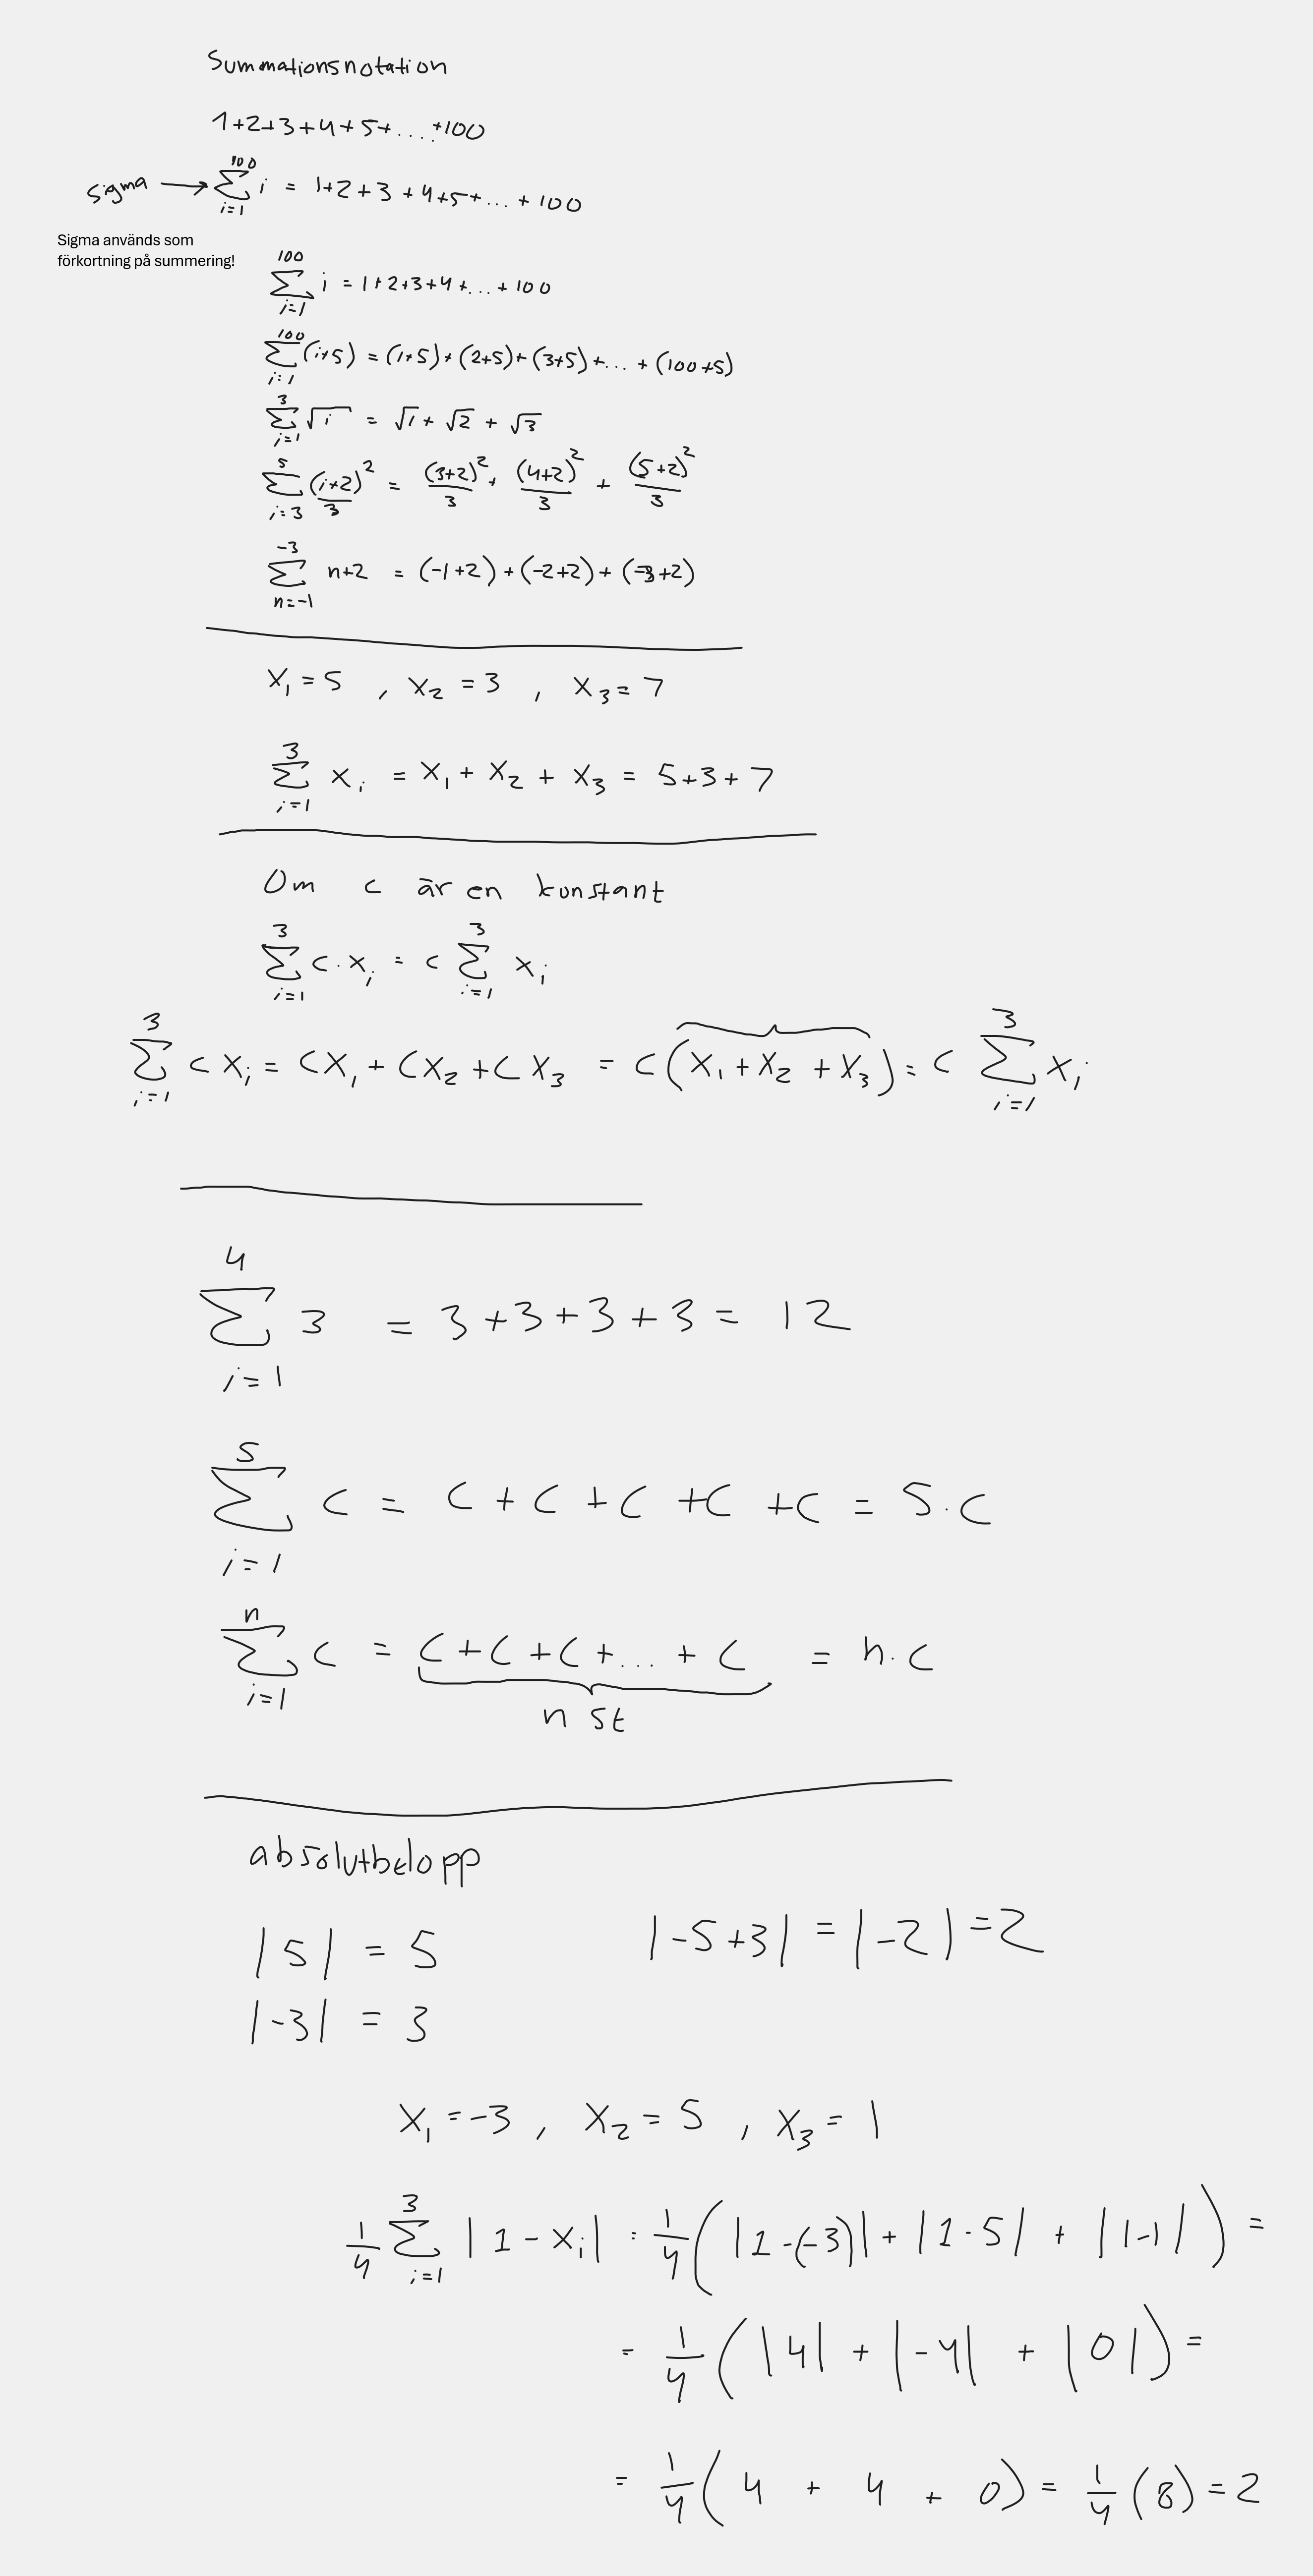 Summationsnotation
1+2+3+4+5+....+100
Sigma → \sum_{i=1}^{100} i = 1+2+3+4+5+...+100
Sigma används som
förkortning på summering!
\sum_{i=1}^{100} i = 1+2+3+4+...+100
\sum_{i=1}^{100} (i+5) = (1+5)+(2+5)+(3+5)+...+(100+5)
\sum_{i=1}^{3} \sqrt{i} = \sqrt{1}+\sqrt{2}+\sqrt{3}
\sum_{i=3}^{5} \frac{(i+2)^2}{3} = \frac{(3+2)^2}{3}+\frac{(4+2)^2}{3}+\frac{(5+2)^2}{3}
\sum_{n=-1}^{-3} n+2 = (-1+2)+(-2+2)+(-3+2)
x_1 = 5 , x_2 = 3 , x_3 = 7
\sum_{i=1}^{3} x_i = x_1 + x_2 + x_3 = 5+3+7
Om c är en konstant
\sum_{i=1}^{3} c·x_i = c \sum_{i=1}^{3} x_i
\sum_{i=1}^{3} c x_i = cx_1 + cx_2 + cx_3 = c(x_1+x_2+x_3) = c \sum_{i=1}^{3} x_i
\sum_{i=1}^{4} 3 = 3+3+3+3 = 12
\sum_{i=1}^{5} c = c+c+c+c+c = 5·c
\sum_{i=1}^{n} c = c+c+c+...+c = n·c
n st
absolutbelopp
|5| = 5 |-5+3| = |-2| = 2
|-3| = 3
x_1 = -3 , x_2 = 5 , x_3 = 1
\frac{1}{4} \sum_{i=1}^{3} |1-x_i| = \frac{1}{4}(|1-(-3)|+|1-5|+|1-1|) =
= \frac{1}{4}(|4|+|-4|+|0|) =
= \frac{1}{4}(4+4+0) = \frac{1}{4}(8) = 2